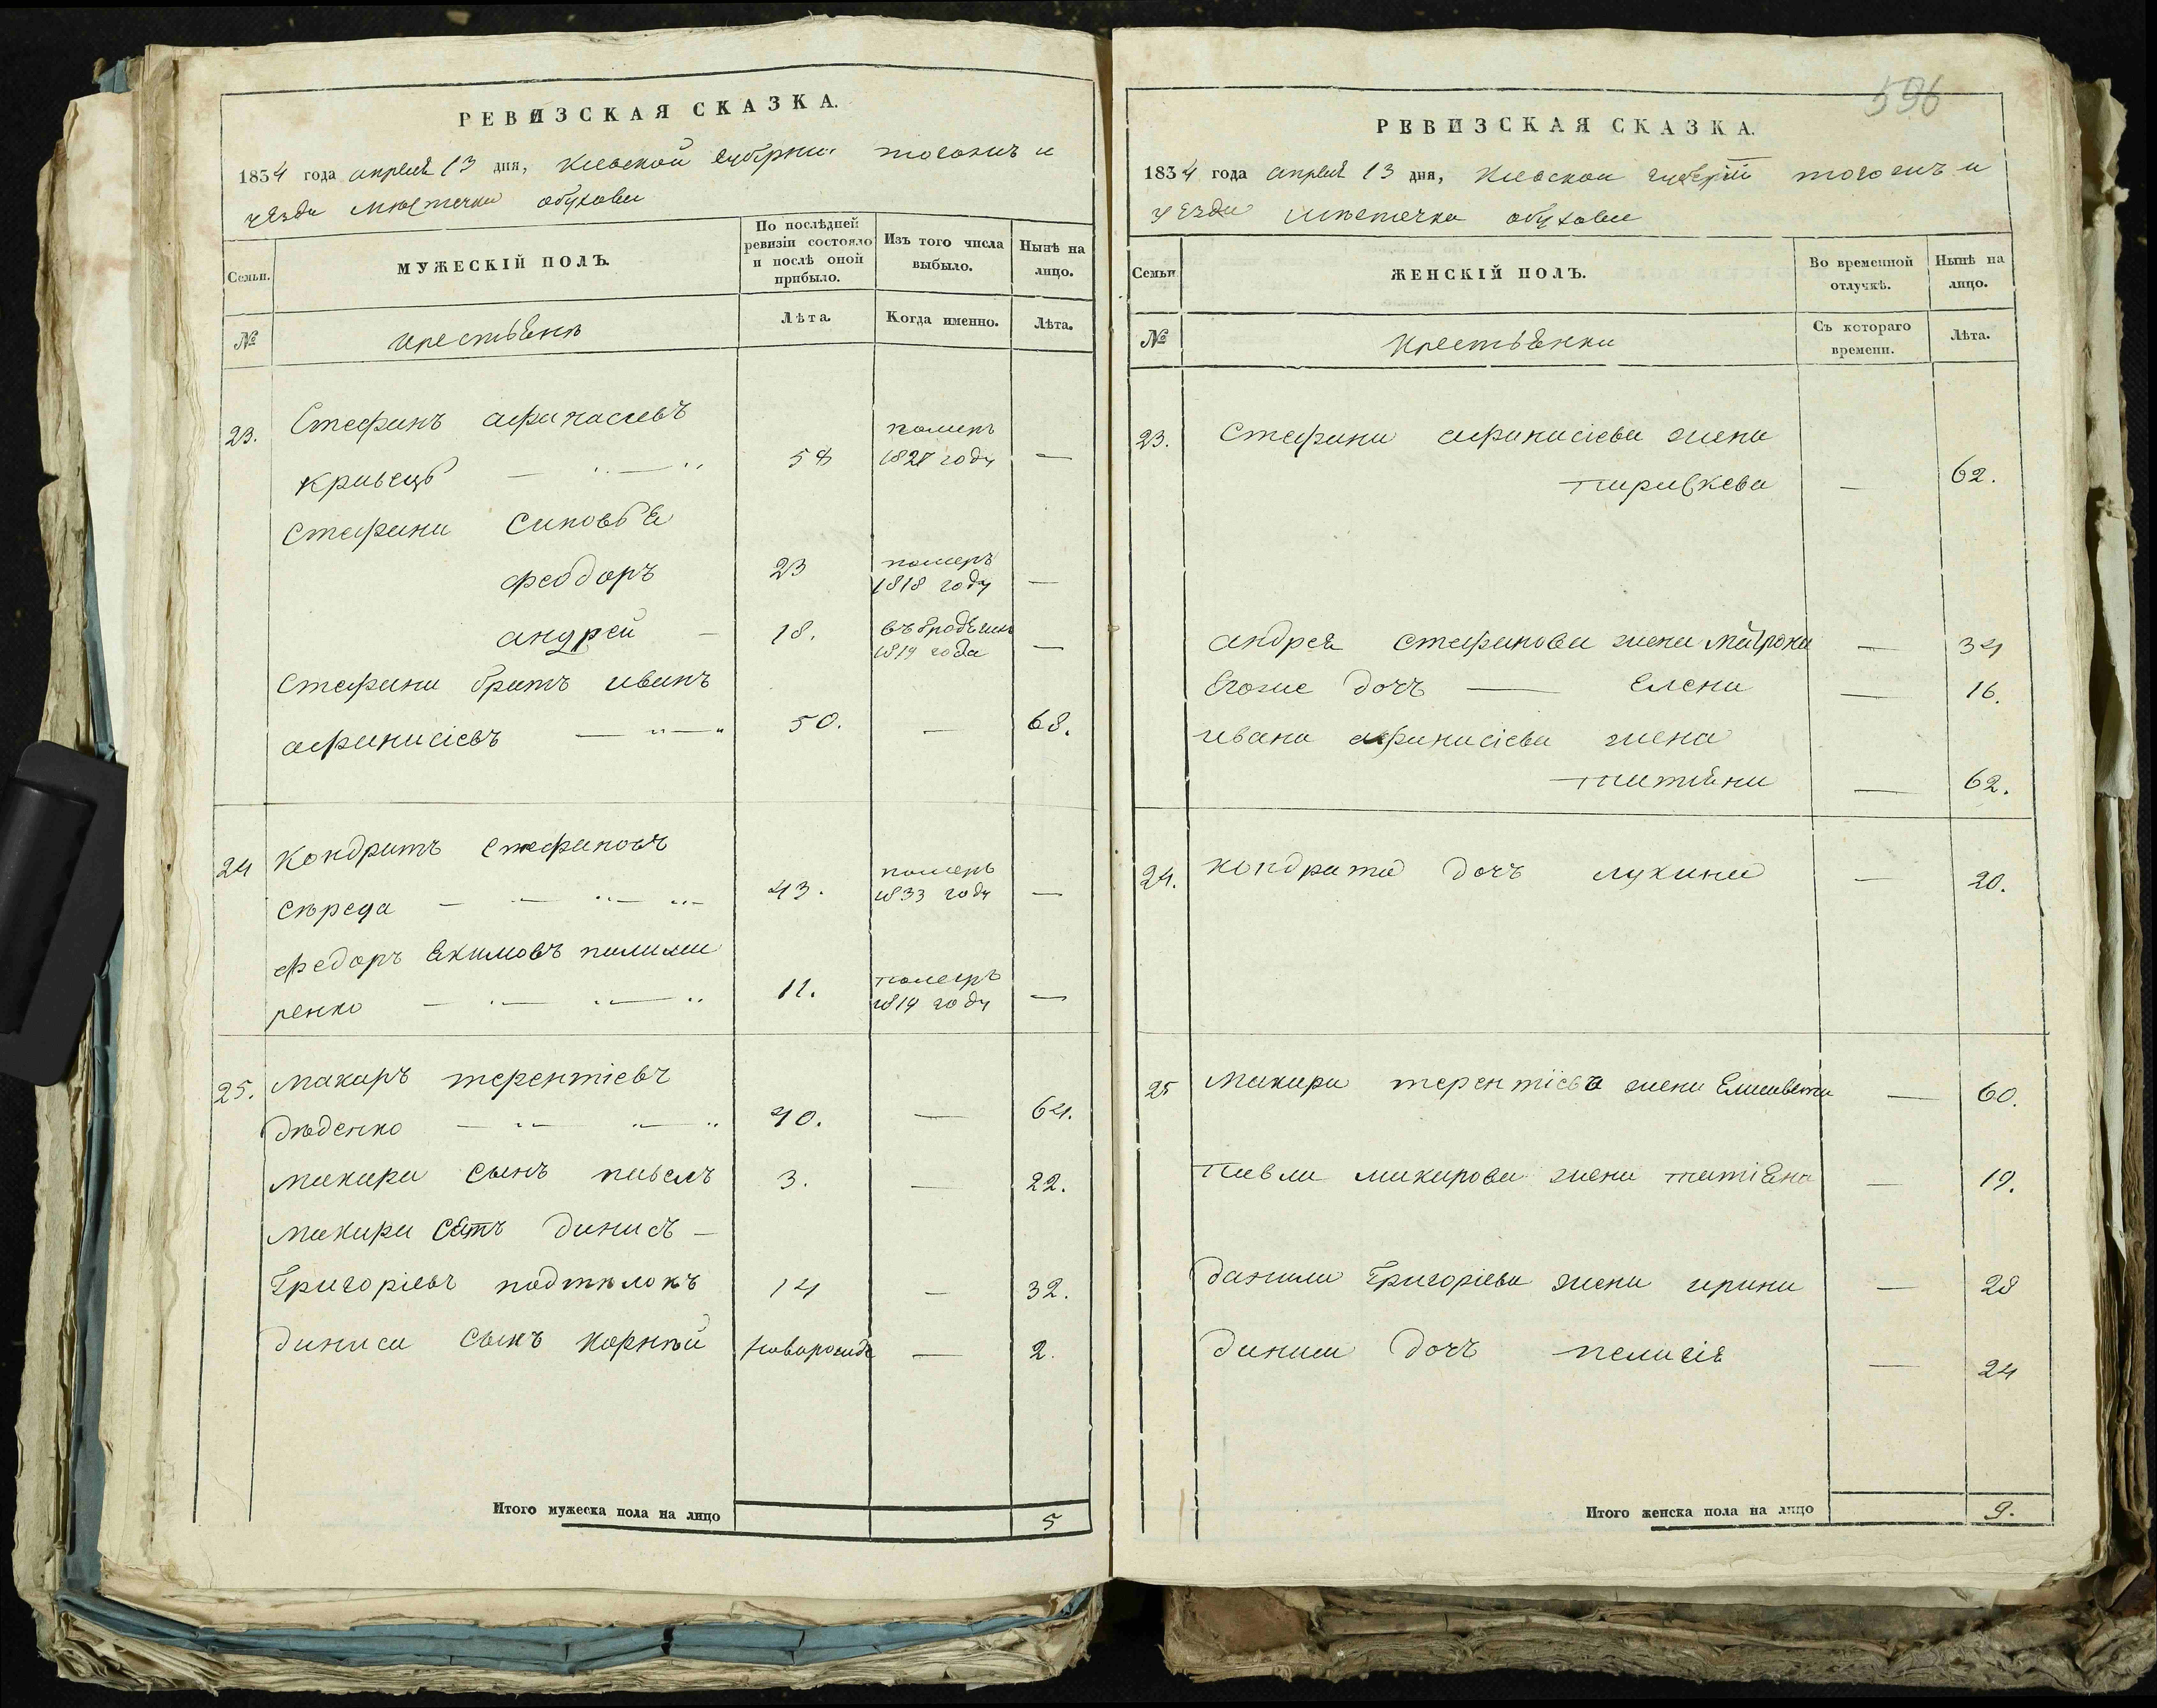 РЕВИЗСКАЯ СКАЗКА.
1834 года апреля 13 дня, Киевской губернии тогожъ и
уезда местечка обухова
Семьи.
МУЖЕСКІЙ ПОЛЪ.
По послѣдней ревизіи состояло и послѣ оной прибыло.
Изъ того числа выбыло.
Нынѣ на лицо.
№
крестьяне
Лѣта.
Когда именно.
Лѣта.
23. Стефанъ афанасиевъ
кривецъ — 58 померъ 1827 году —
Стефана синовья
феодоръ 23 померъ 1818 году —
андрей — 18. въ бродягахъ 1819 года —
Стефана братъ иванъ
афанасіевъ — 50. — 68.
24 Кондратъ Стефановъ
сѣреда — 43. померъ 1833 году —
федоръ Якимовъ
ренко — 11. померъ 1819 году —
25. Макаръ терентіевъ
дѣденко — 40. — 64.
макара сынъ павелъ 3. — 22.
макара зятъ данисъ —
Григоріевъ подтѣлокъ 14 — 32.
даниса сынъ корнѣй новорожде — 2.
Итого мужеска пола на лицо 5
596
РЕВИЗСКАЯ СКАЗКА.
1834 года апреля 13 дня, Киевской губерніи тогожъ и
уезда местечка обухова
Семьи
ЖЕНСКІЙ ПОЛЪ.
Во временной отлучкѣ.
Нынѣ на лицо.
№
крестьянки
Съ котораго времени.
Лѣта.
23. Стефана афанасіева жена
параскева — 62.
андрея стефанова жена матрона — 34
Егоже дочъ — Елена — 16.
ивана афанасіева жена
татіяна — 62.
24. кондрата дочъ лукина — 20.
25 макара терентіева жена Елисавета — 60.
павла макарова жена татіяна — 19.
данила Григоріева жена ирина — 28
данила дочъ пелагія — 24
Итого женска пола на лицо 9.